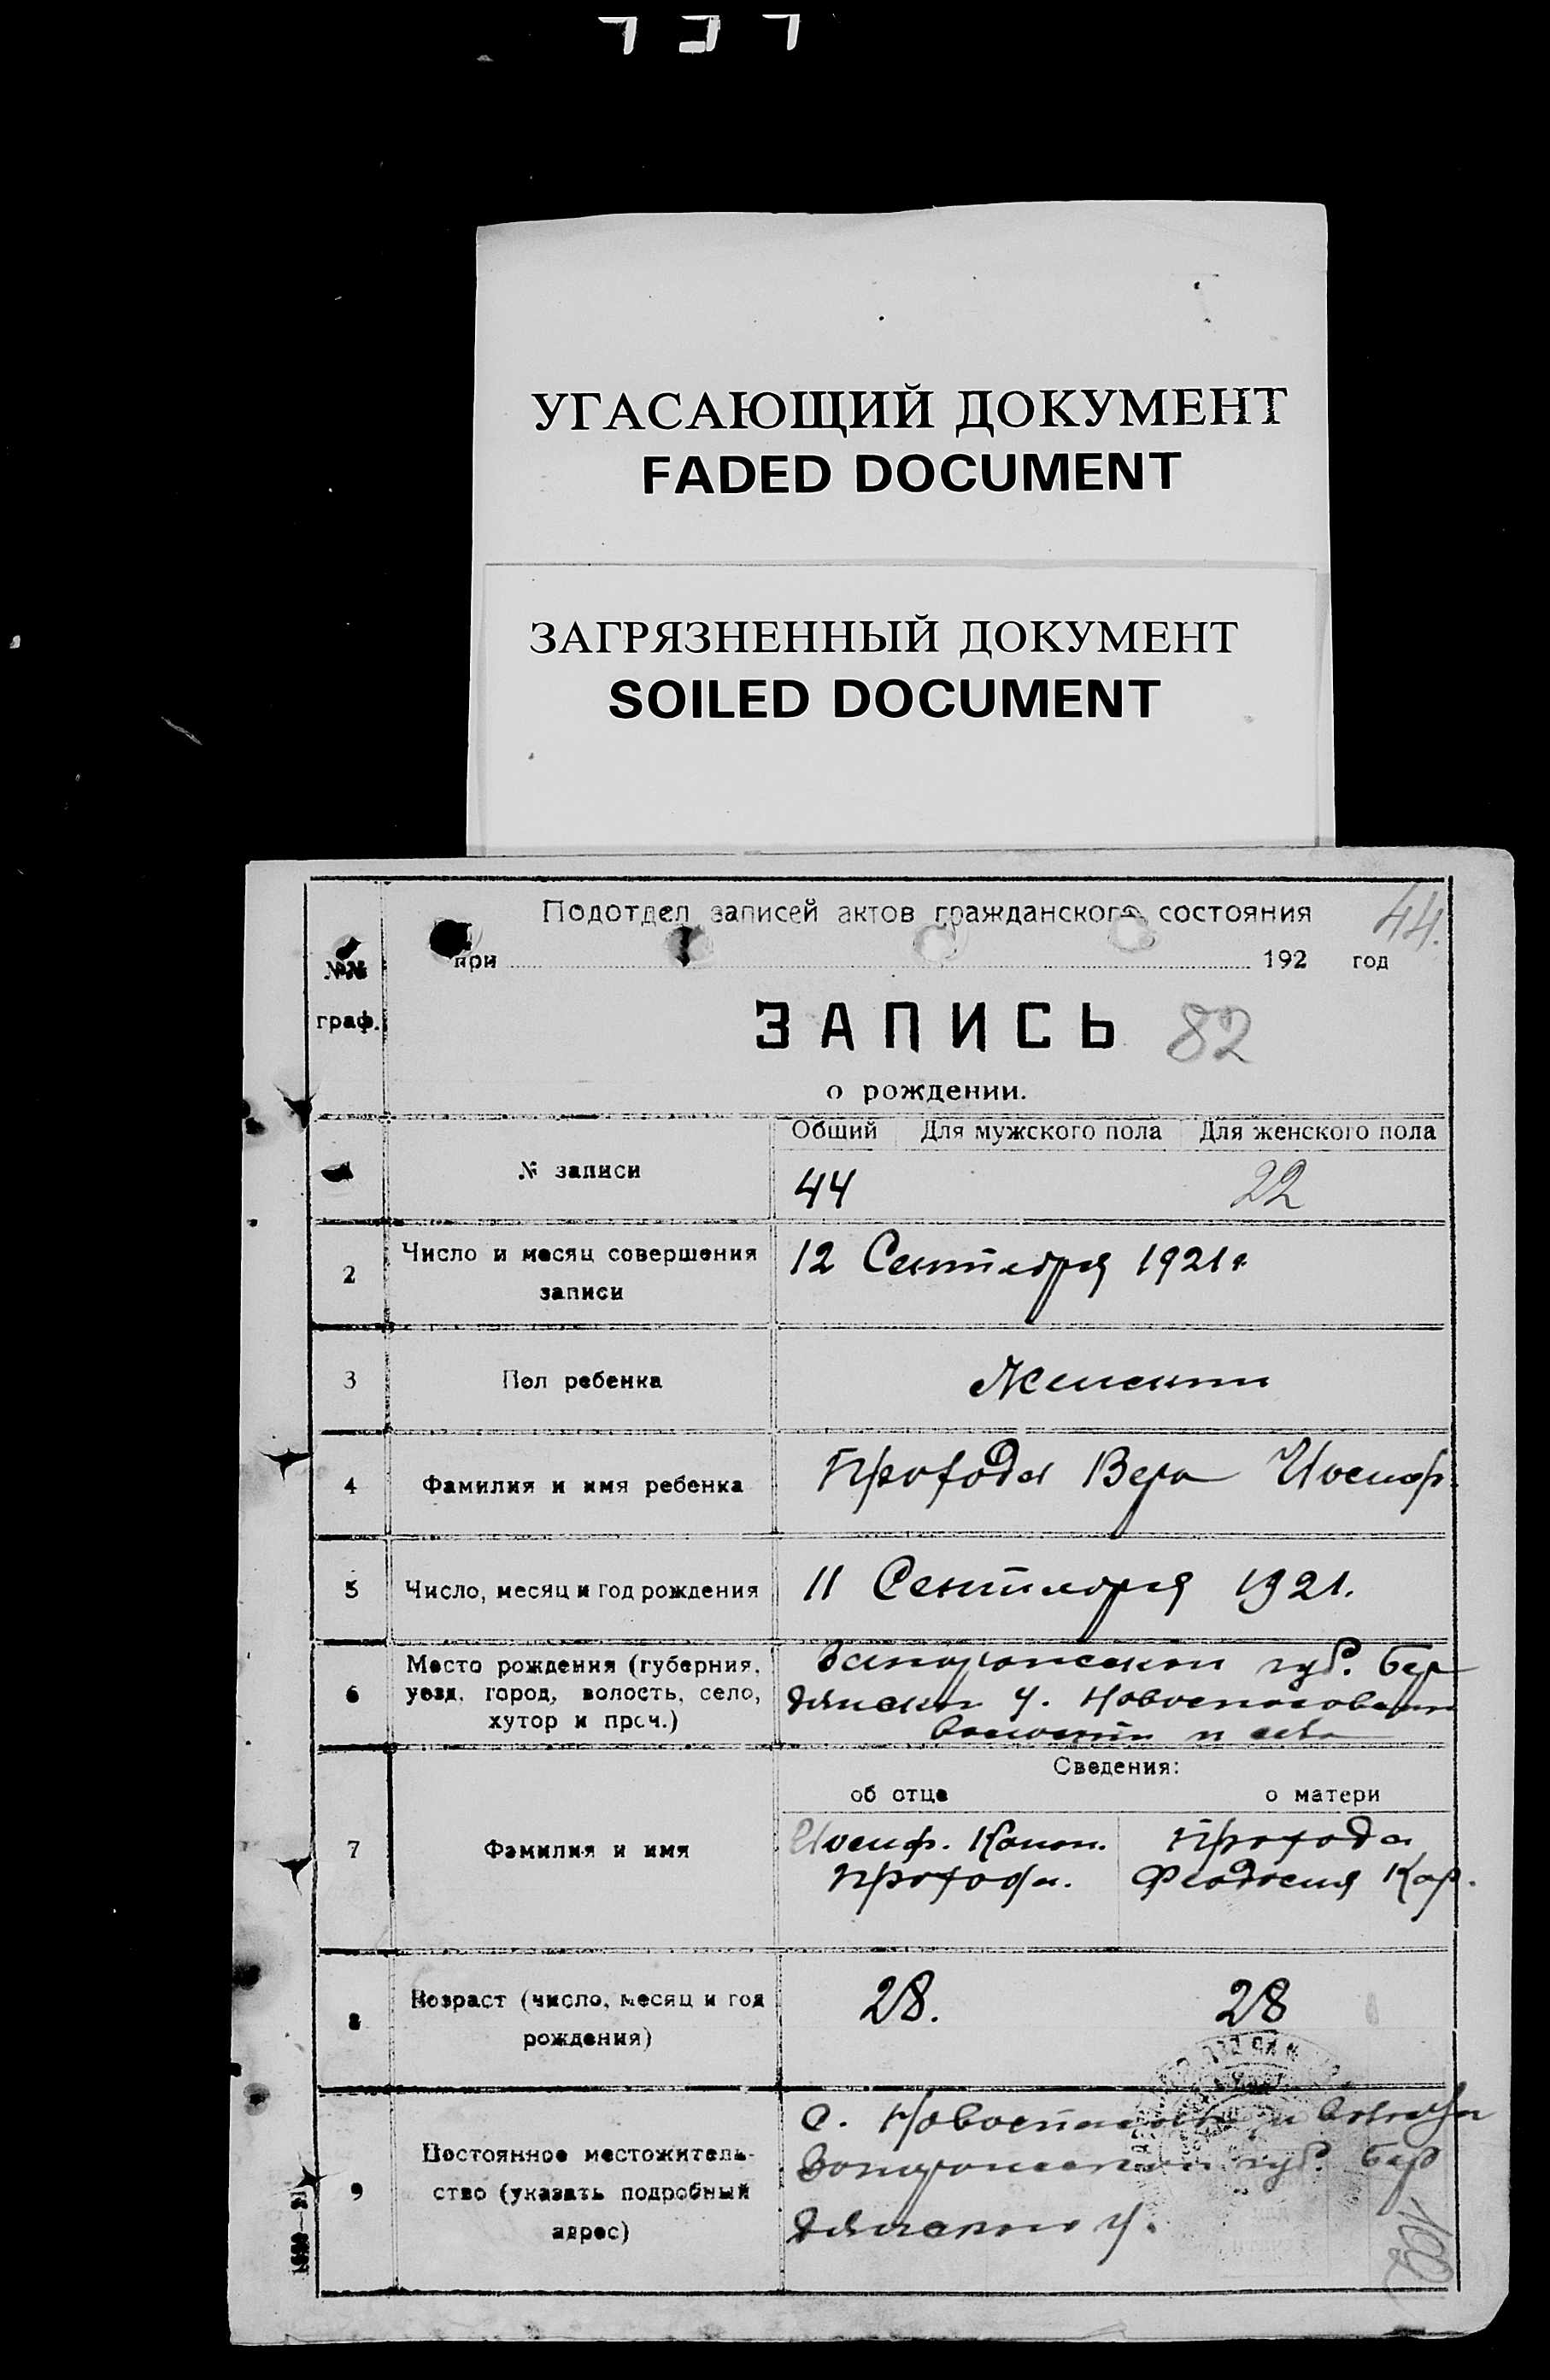 УГАСАЮЩИЙ ДОКУМЕНТ
FADED DOCUMENT
ЗАГРЯЗНЕННЫЙ ДОКУМЕНТ
SOILED DOCUMENT
Подотдел записей актов гражданского состояния
44.
при 192 год
№№
граф.
ЗАПИСЬ 82
о рождении.
Общий Для мужского пола Для женского пола
1 № записи 44 22
2 Число и месяц совершения
записи
12 Сентября 1921 г
3 Пол ребенка Женский
4 Фамилия и имя ребенка Прохода Вера Иосиф.
5 Число, месяц и год рождения 11 Сентября 1921.
6 Место рождения (губерния,
уезд, город, волость, село,
хутор и проч.)
Запорожской губ. Бер
дянского у. Новоспасовской
волости и села
Сведения:
об отце о матери
7 Фамилия и имя
Иосиф. Конон.
Прохода.
Прохода
Феодосия Кар.
8 Возраст (число, месяц и год
рождения)
28. 28
9 Постоянное местожитель-
ство (указать подробный
адрес)
с. Новоспасовка и волости
Запорожской губ. Бер
дянского у.